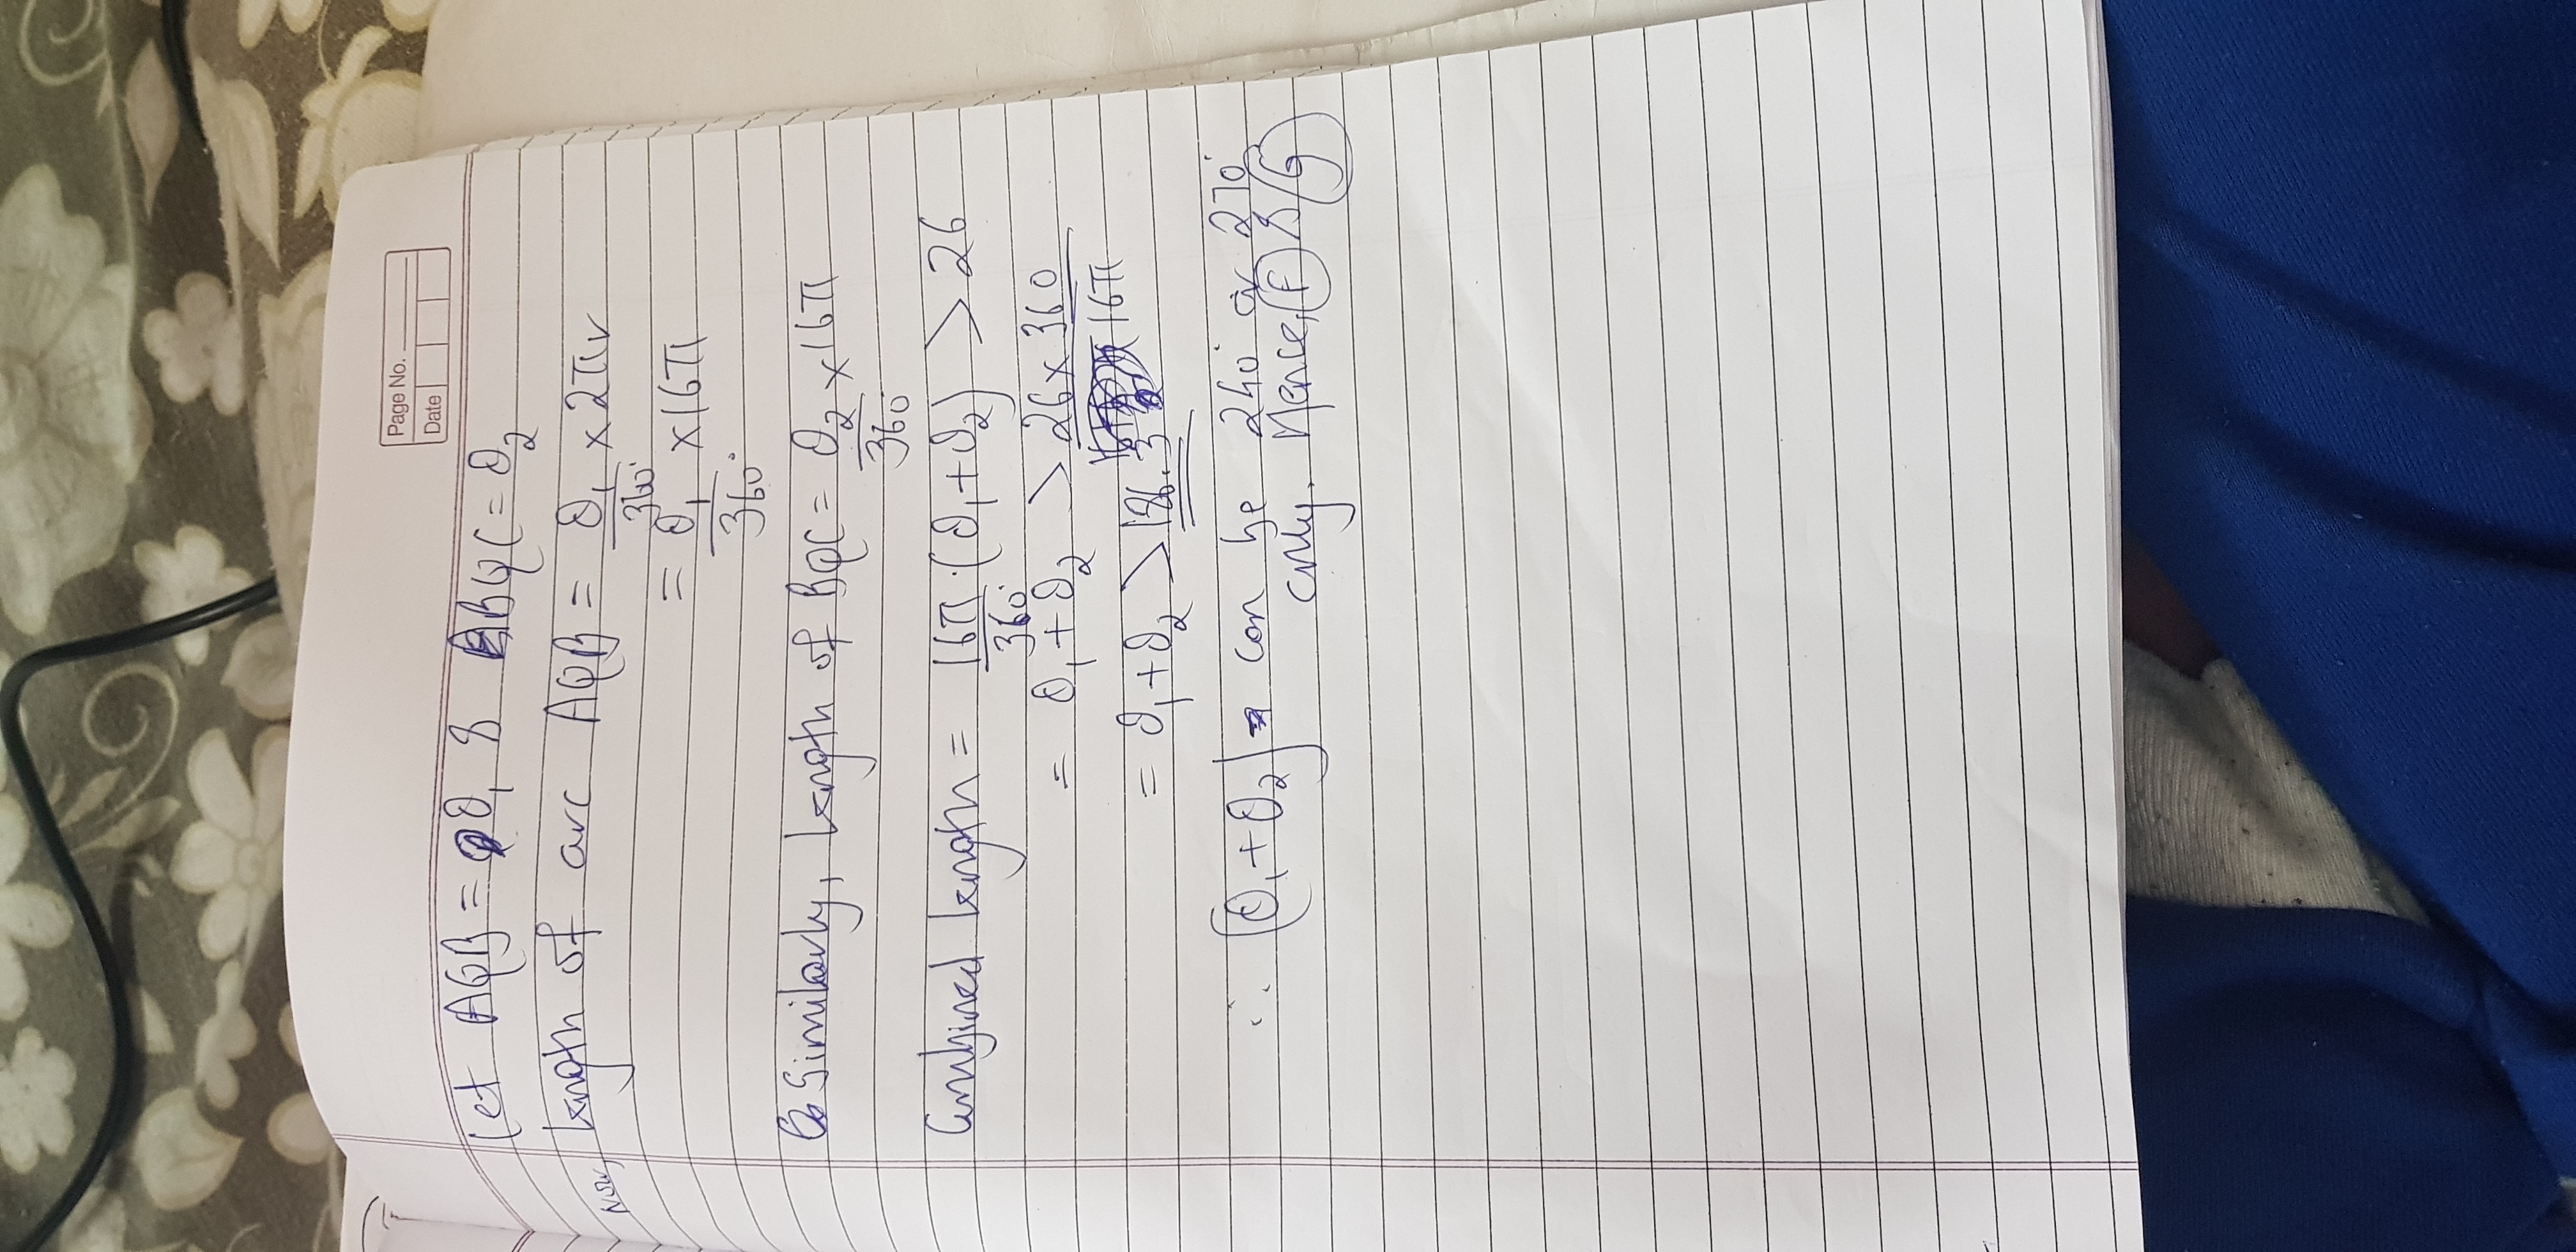 Page No.
Date
Let AQB = θ₁ & BQC = θ₂
Now, length of arc AQB = θ₁/360° × 2πr
= θ₁/360° × 16π
Similarly, length of BQC = θ₂/360 × 16π
Combined length = 16π/360° · (θ₁+θ₂) > 26
= θ₁ + θ₂ > 26 × 360/16π
= θ₁ + θ₂ > 186.3
∴ (θ₁ + θ₂) can be 240° or 270°
only. Hence, F & G